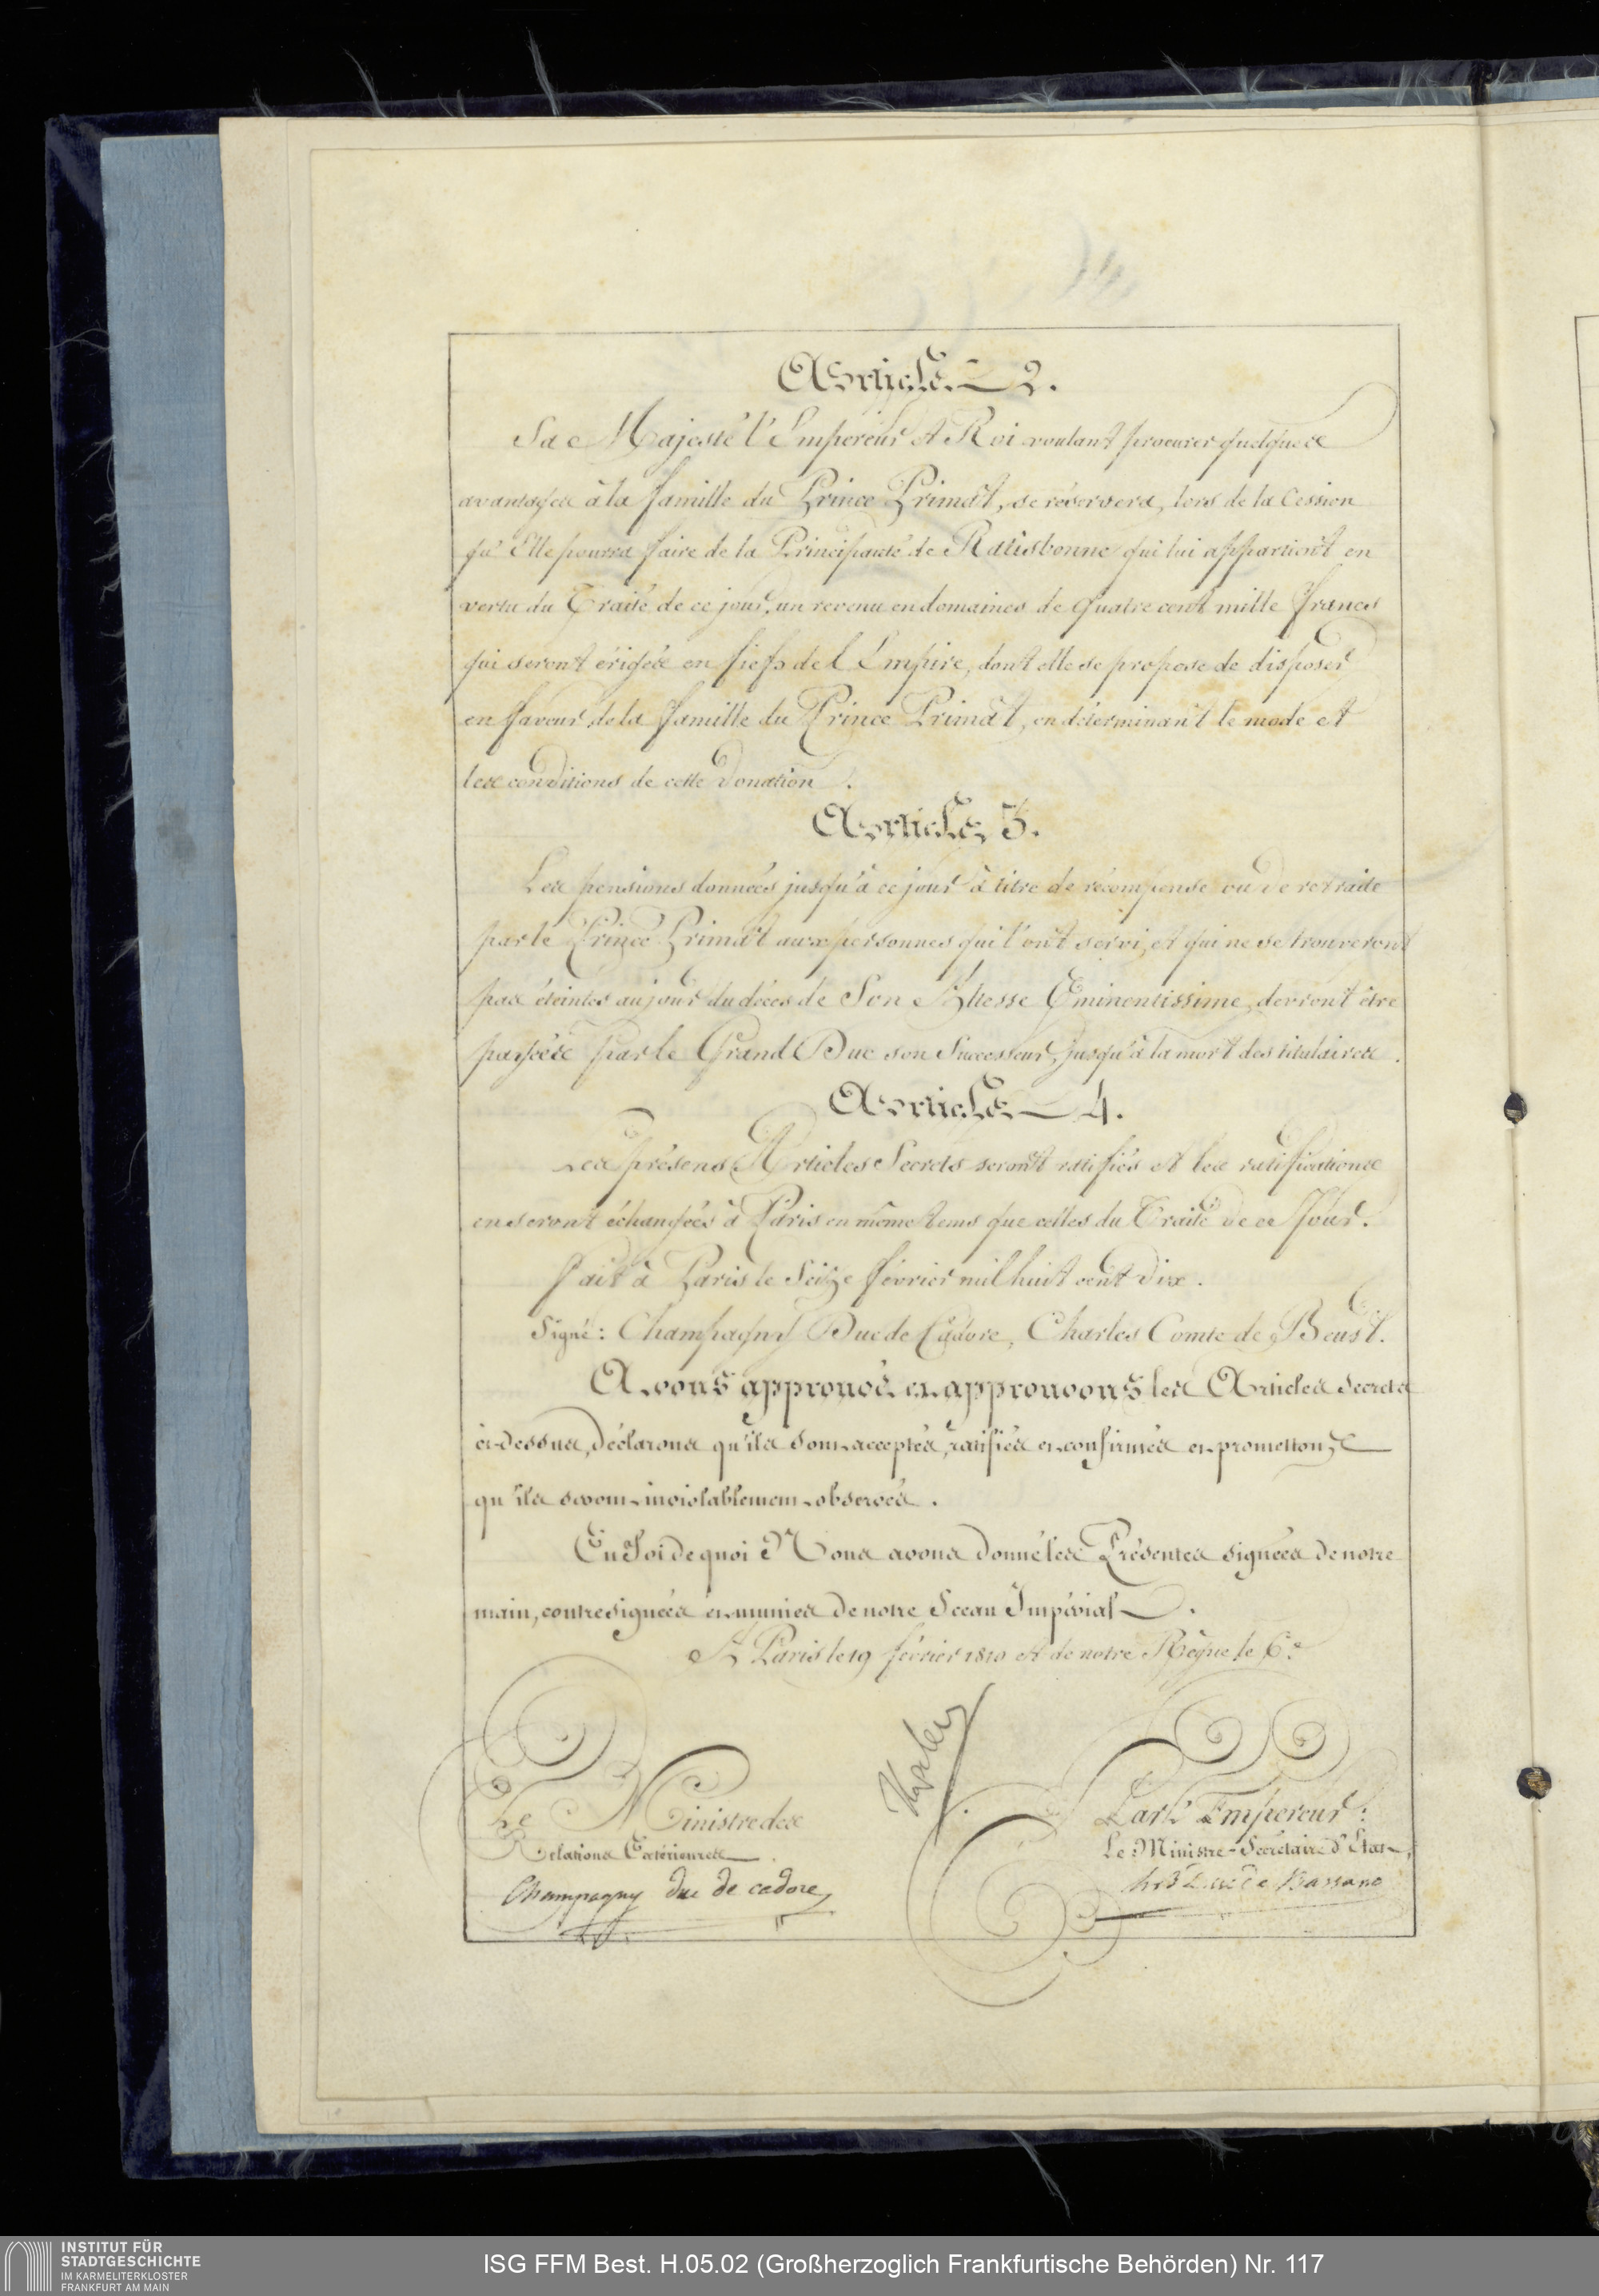 Article 2.
Sa Majesté l'Empereur et Roi voulant procurer quelques
avantages à la famille du Prince Primat, se réservera, lors de la Cession
qu'Elle pourra faire de la Principauté de Ratisbonne qui lui appartient en
vertu du Traité de ce jour, un revenu en domaines de quatre cent mille francs
qui seront érigés en fiefs de l'Empire, dont elle se propose de disposer
en faveur de la famille du Prince Primat, en déterminant le mode et
les conditions de cette Donation.
Article 3.
Les pensions données jusqu'à ce jour à titre de récompense ou de retraite
par le Prince Primat aux personnes qui l'ont servi, et qui ne se trouveront
pas éteintes au jour du décès de Son Altesse Eminentissime, devront être
payées par le Grand Duc son Successeur, jusqu'à la mort des titulaires.
Article 4.
Les présens Articles Secrets seront ratifiés et les ratifications
en seront échangées à Paris en même tems que celles du Traité de ce Jour.
Fait à Paris le Seize février mil huit cent dix.
Signé: Champagny Duc de Cadore, Charles Comte de Beust.
Avons approuvé et approuvons les Articles Secrets
ci-dessus, déclarons qu'ils sont acceptés, ratifiés et confirmés et promettons
qu'ils seront inviolablement observés.
En Foi de quoi Nous avons donné les Présentes signées de notre
main, contresignées et munies de notre Sceau Impérial.
A Paris le 19 février 1810 et de notre Règne le 6.e
Le Ministre des
Relations Extérieures
Champagny duc de cadore
Par l'Empereur:
Le Ministre-Secrétaire d'Etat,
Duc de Bassano
INSTITUT FÜR
STADTGESCHICHTE
IM KARMELITERKLOSTER
FRANKFURT AM MAIN
ISG FFM Best. H.05.02 (Großherzoglich Frankfurtische Behörden) Nr. 117